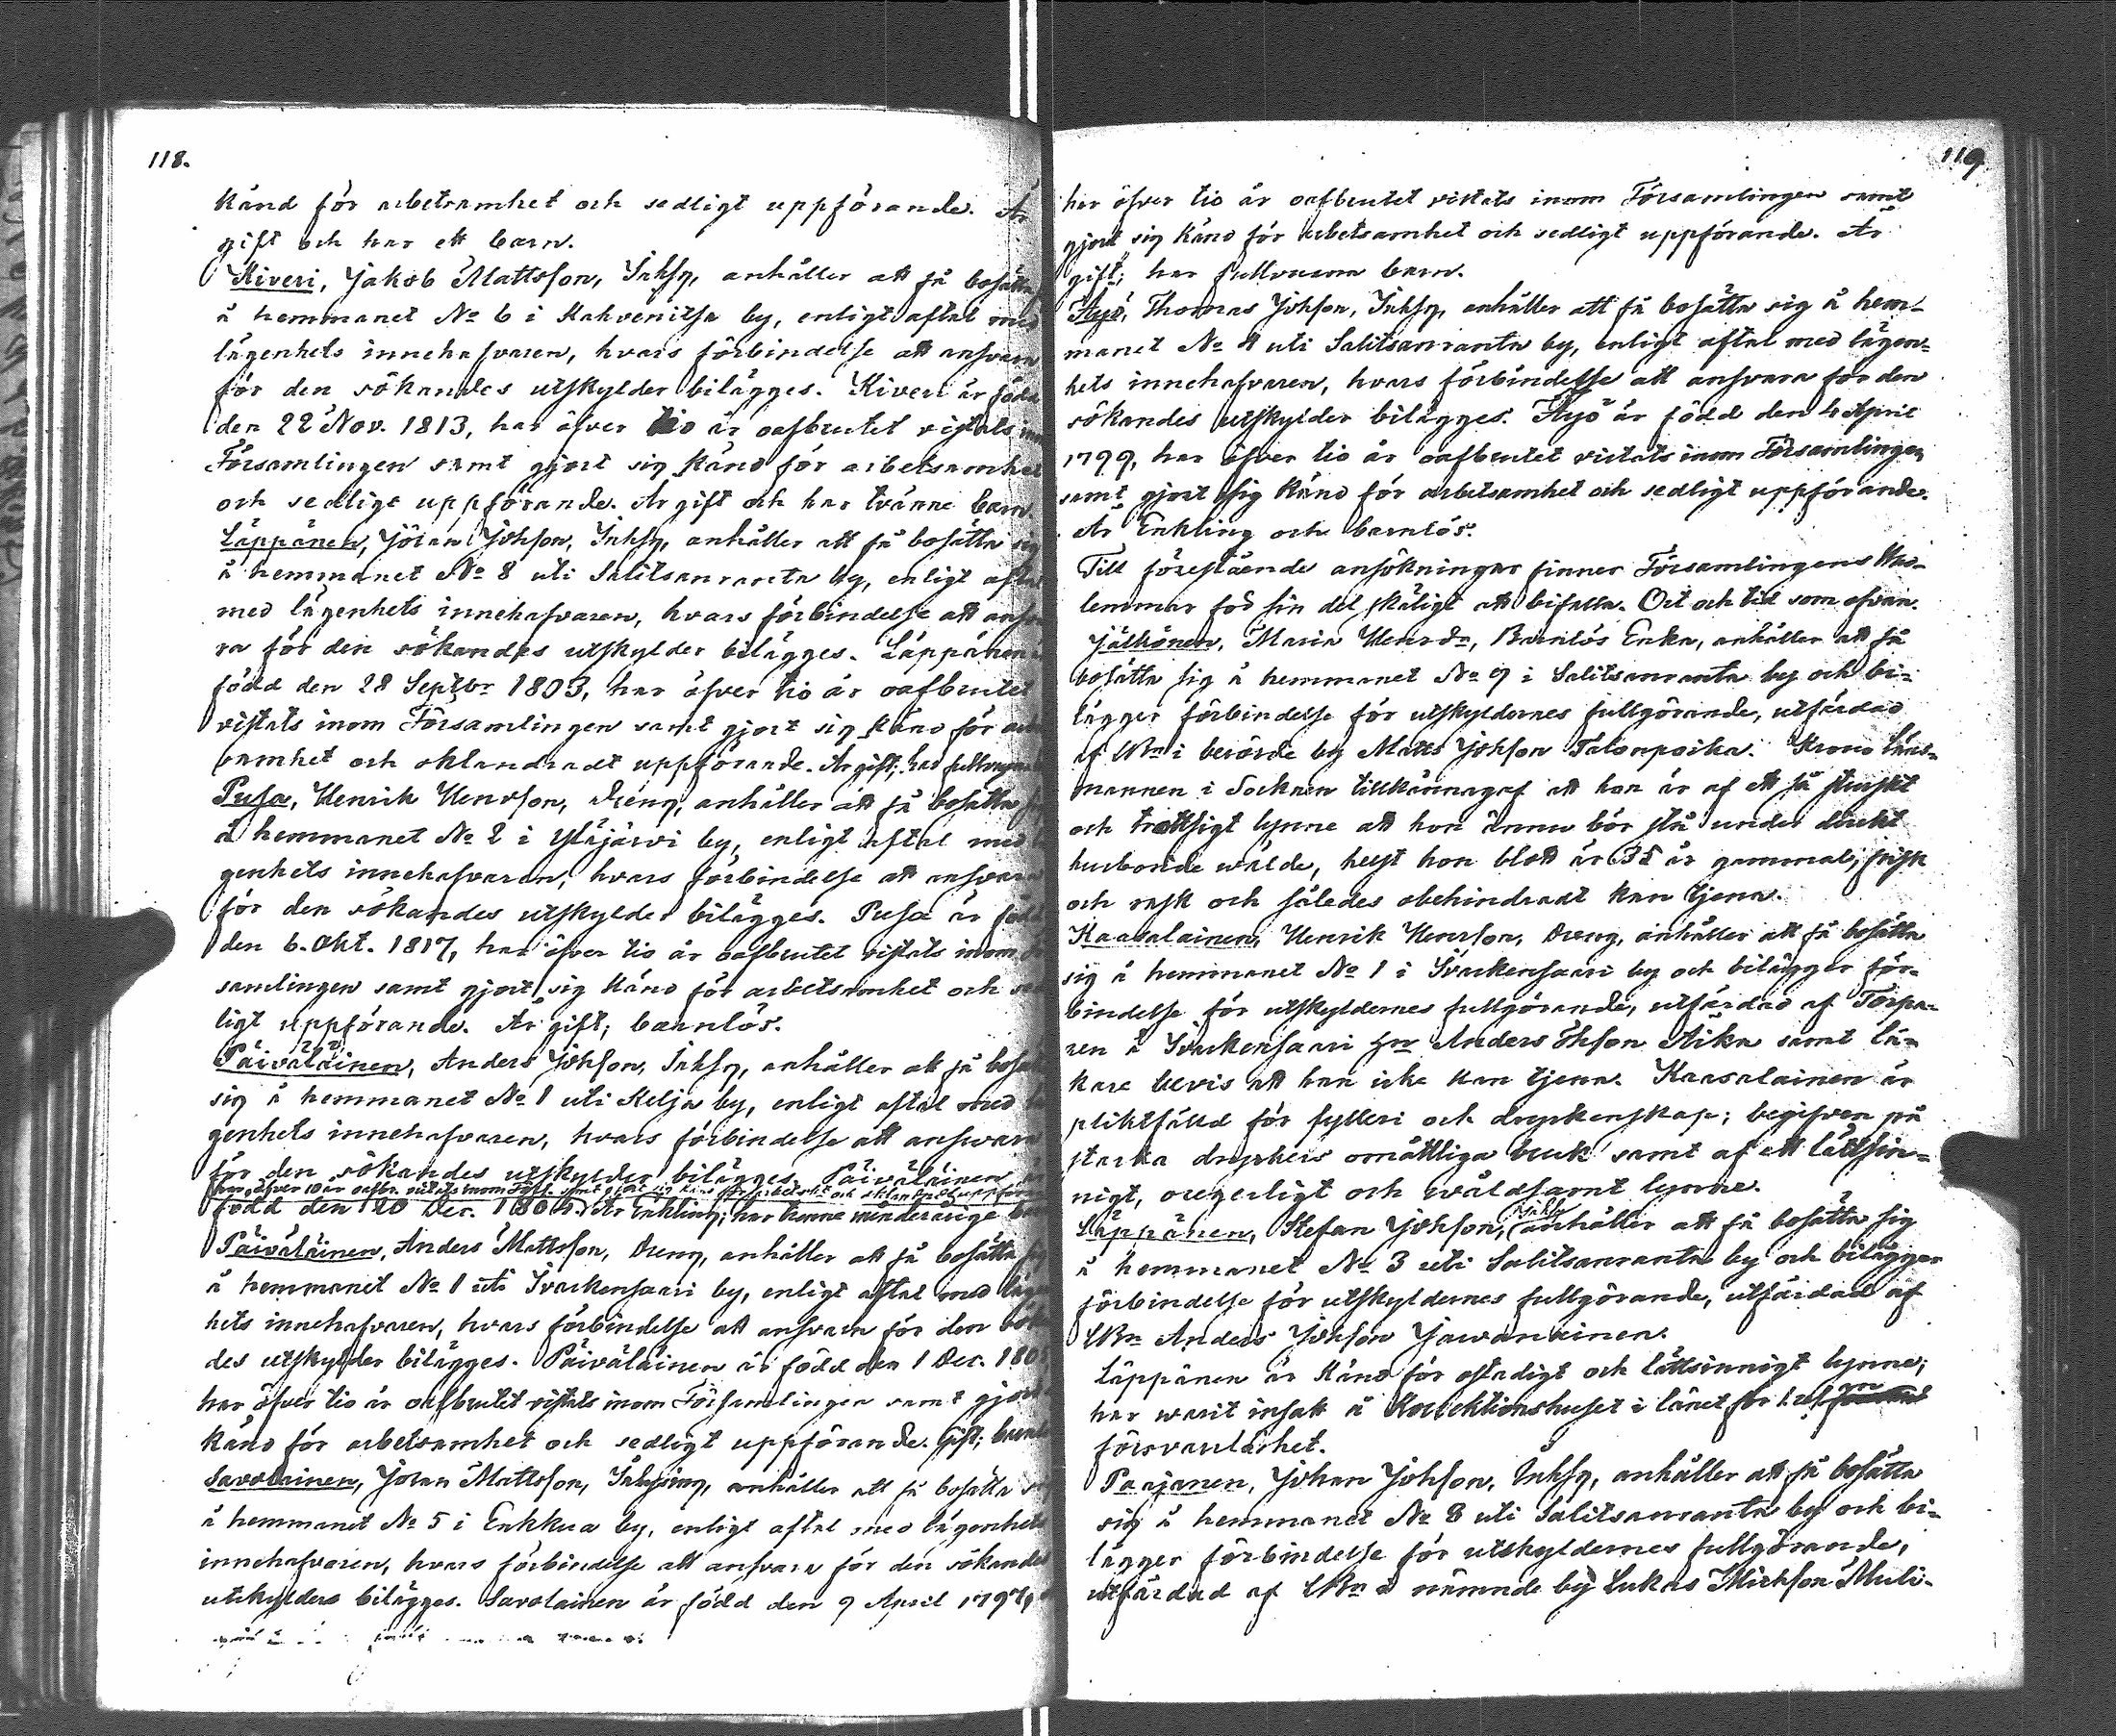 118.
känd för arbetsamhet och sedligt uppförande. Är
gift och har ett barn.
Kiveri, Jakob Mattsson, Inhsg, anhåller att få bosätta
å hemmanet No 6 i Kahvenitsa by, enligt aftal med
lägenhets innehafvaren, hvars förbindelse att ansvara
för den sökandes utskylder bilägges. Kiveri är född
den 22 Nov. 1813, har öfver tio år oafbrutet vistats inom
Församlingen samt gjort sig känd för arbetsamhet
och sedligt uppförande. Är gift och har tvänne barn.
Läppänen, Jöran Johsson, Inhsg, anhåller att få bosätta sig
å hemmanet No 8 uti Salitsanranta by, enligt aftal
med lägenhets innehafvaren, hvars förbindelse att ansva
ra för den sökandes utskylder bilägges. Läppänen
född den 28 Septbr 1803, har öfver tio år oafbrutet
vistats inom Församlingen samt gjort sig känd för
samhet och oklandradt uppförande. Är gift; har fullvuxna
Pusa, Henrik Henrsson, dreng, anhåller att få bosätta
å hemmanet No 2 i Yläjärvi by, enligt aftal med
genhets innehafvaren, hvars förbindelse att ansvara
för den sökandes utskylder bilägges. Pusa är född
den 6. Okt. 1817, har öfver tio år oafbrutet vistats inom
samlingen samt gjort sig känd för arbetsamhet och
ligt uppförande. Är gift; barnlös.
Päiväläinen, Anders Johsson, Inhsg, anhåller att få bosätta
sig å hemmanet No 1 uti Kelja by, enligt aftal med
genhets innehafvaren, hvars förbindelse att answara
för den sökandes utskylder bilägges. Päiväläinen
har öfver 10 år oafbr. vistats inom Förs. samt gjort sig känd för arbetsht och oklandradt uppför
född den 20 Dec. Är Enkling; har tvenne minderårige
Päiväläinen, Anders Mattsson, dreng, anhåller att få bosätta
å hemmanet No 1 uti Svarkensaari by, enligt aftal med
hets innehafvaren, hvars förbindelse att ansvara för den
des utskylder bilägges. Päiväläinen är född den 1 Dec.
har öfver tio år oafbrutet vistats inom Församlingen samt gjort
känd för arbetsamhet och sedligt uppförande. Gift;
Savolainen, Jöran Mattsson, anhåller att få bosätta
å hemmanet No 5 i Enkkua by, enligt aftal med lägenhets
innehafvaren, hvars förbindelse att ansvara för den sökandes
utskylders bilägges. Savolainen är född den 9 April
119
har öfver tio år oafbrutet vistats inom Församlingen samt
gjort sig känd för arbetsamhet och sedligt uppförande. Är
gift; har fullvuxna barn.
Äyö, Thomas Johsson, Inhsg, anhåller att få bosätta sig å hem-
manet No 4 uti Salitsanranta by, enligt aftal med lägen-
hets innehafvaren, hvars förbindelse att ansvara för den
sökandes utskylder bilägges. Äyö är född den 4 April
1799, har öfver tio år oafbrutet vistats inom Församlingen
samt gjort sig känd för arbetsamhet och sedligt uppförande.
Är Enkling och barnlös.
Till förestående ansökningar finner Församlingens Med-
lemmar för sin del skäligt att bifalla. Ort och tid som ofvan.
Jälkönen, Maria Henrsdr, Barnlös Enka, anhåller att få
bosätta sig å hemmanet No 9 i Salitsanranta by och bi-
lägger förbindelse för utskyldernes fullgörande, utfärdad
af LBn i berörde by Matts Johsson Talonpoika. Krono läns-
mannen i Socknen tillkännagaf att hon är af ett så sturskt
och trottsigt lynne att hon ännu bör stå under direkt
husbonde wälde, helst hon blott är 35 år gammal; frisk
och rask och således obehindradt kan tjena.
Kaasalainen, Henrik Henrsson, Dreng, anhåller att få bosätta
sig å hemmanet No 1 i Svarkensaari by och bilägger för-
bindelse för utskyldernes fullgörande, utfärdad af Torpa-
ren å Svarkensaari Anders Aika samt lä-
kare bevis att han icke kan tjena. Kaasalainen är
pliktfälld för fylleri och dryckenskap; begifven på
starka dryckers omåttliga bruk samt af ett lättsin-
nigt, oregerligt och wåldsamt lynne.
Läppänen, Stefan Johsson, Inhsg anhåller att få bosätta sig
å hemmanet No 3 uti Salitsanranta by och bilägger
förbindelse för utskyldernes fullgörande, utfärdad af
LBn Anders Johsson Jawanainen.
Läppänen är känd för ostadigt och lättsinnigt lynne;
har warit insatt å Korrektionshuset i länet för
försvarslöshet.
Paajanen, Johan Johsson, Inhsg, anhåller att få bosätta
sig å hemmanet No 8 uti Salitsanranta by och bi-
lägger förbindelse för utskyldernes fullgörande,
utfärdad af LBn i nämnde by Lukas Mickson Muli-